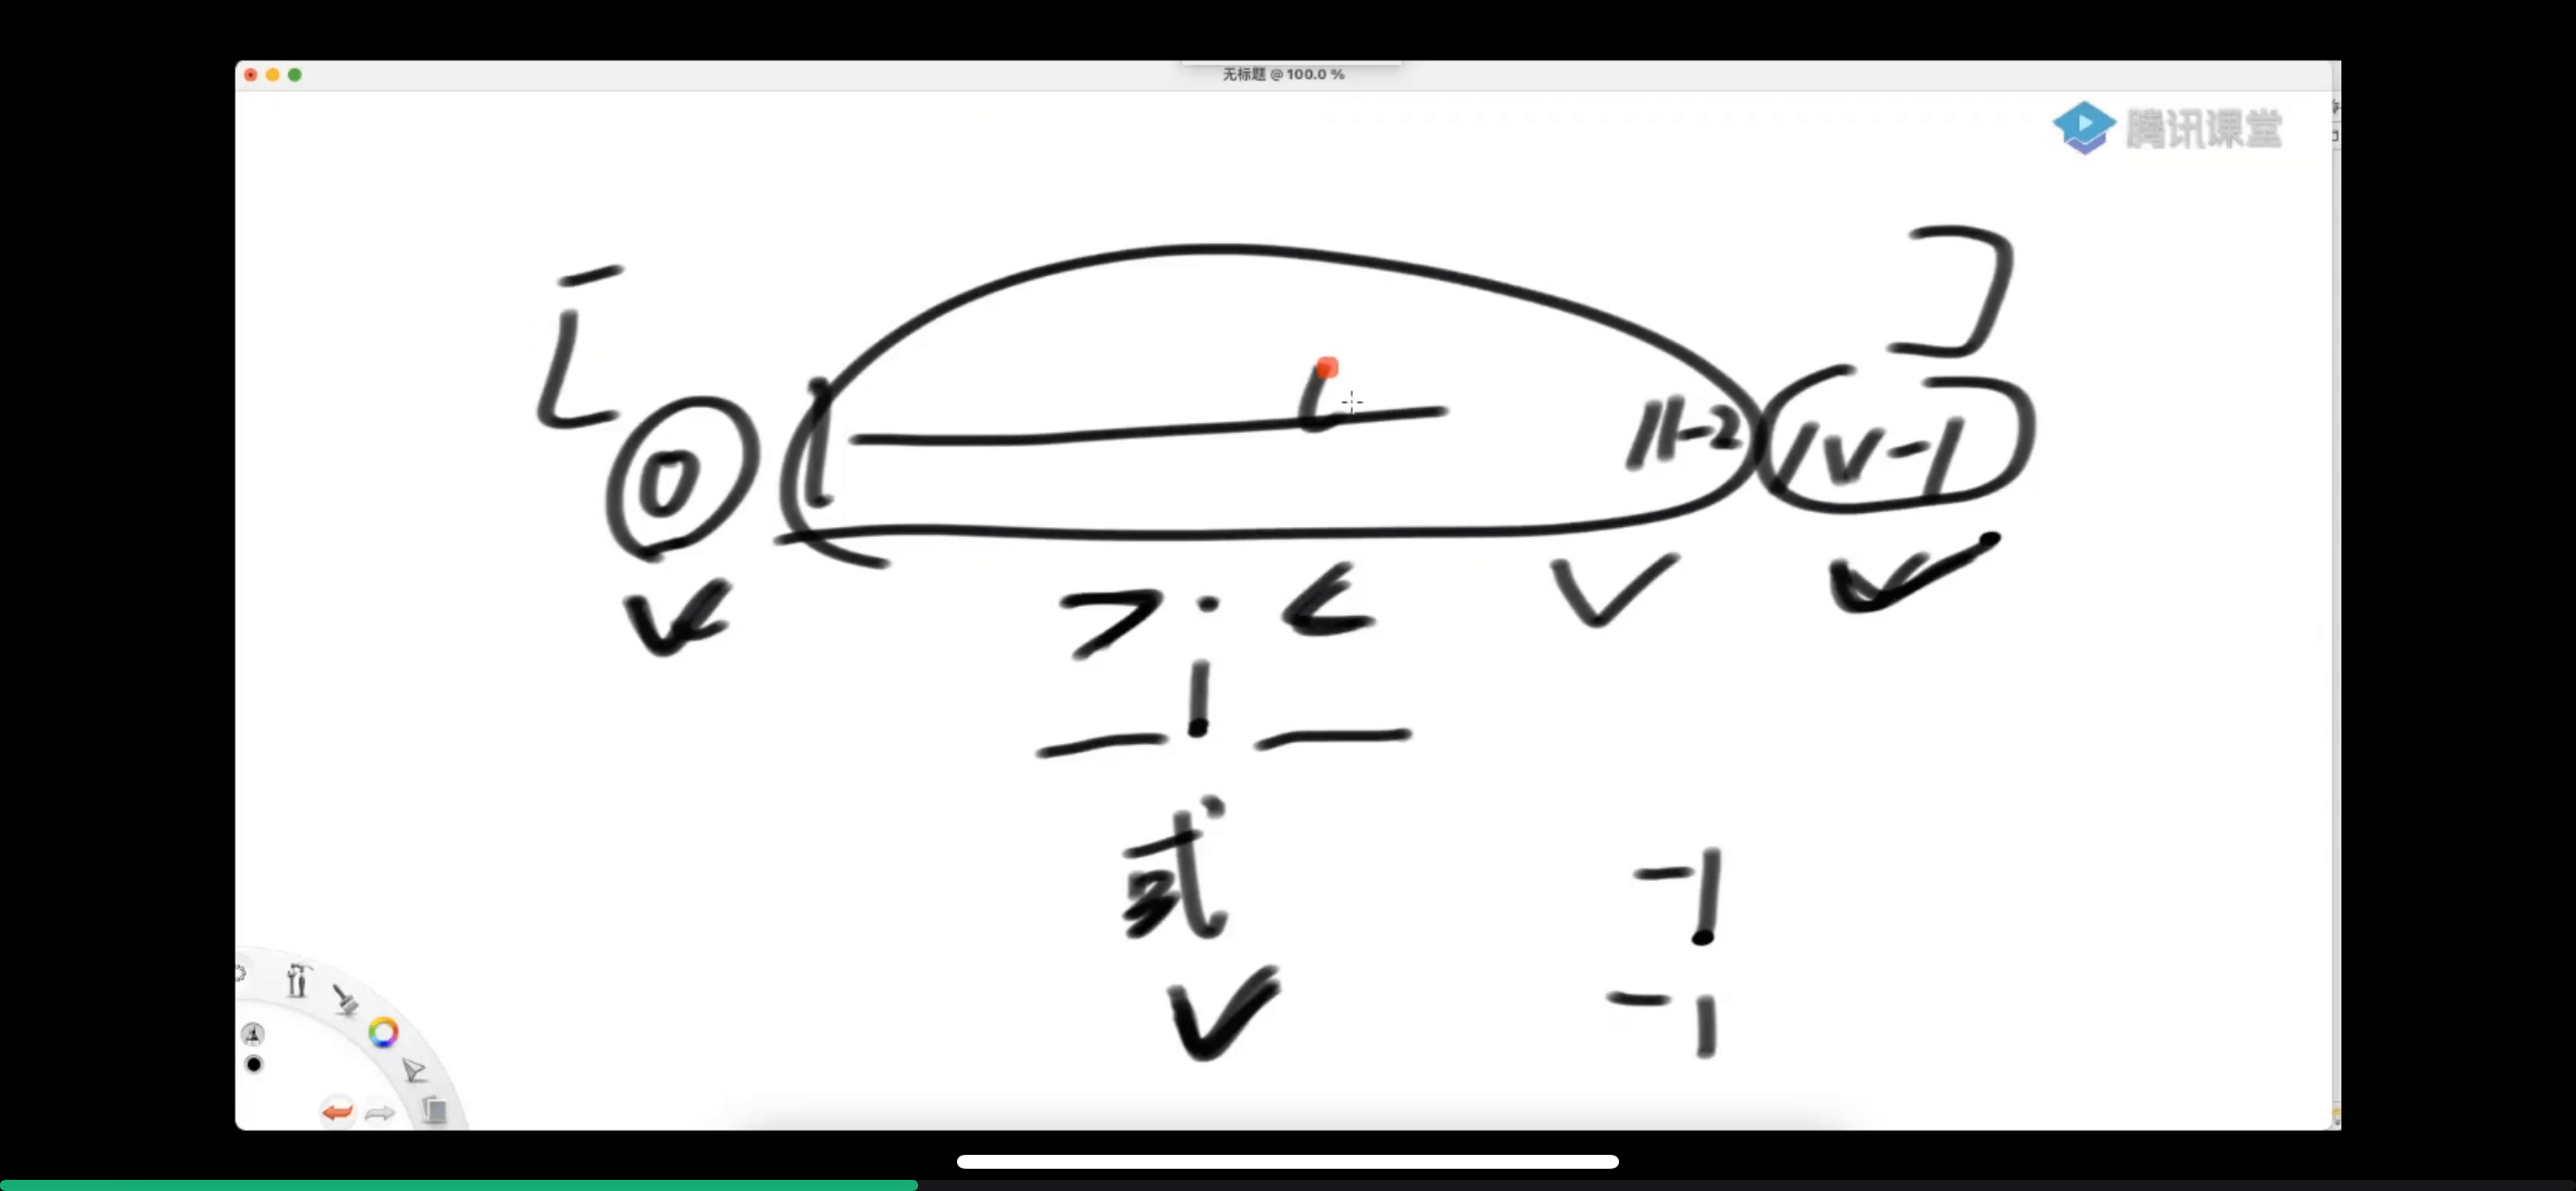 无标题 @ 100.0 %
腾讯课堂
[ ]
0 1 N-2 N-1
> · <
1
式
-1
-1